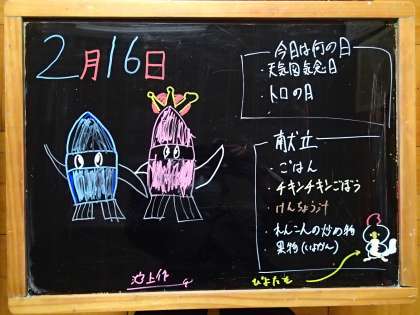 2月16日
今日は何の日
・天気図記念日
・トロの日
献立
ごはん
・チキンチキンごぼう
・けんちょう汁
・れんこんの炒め物
果物(いよかん)
池上作
ぴよたそ